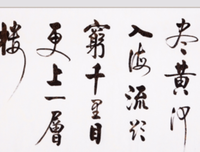 盡黃河
入海流欲
窮千里目
更上一層
樓